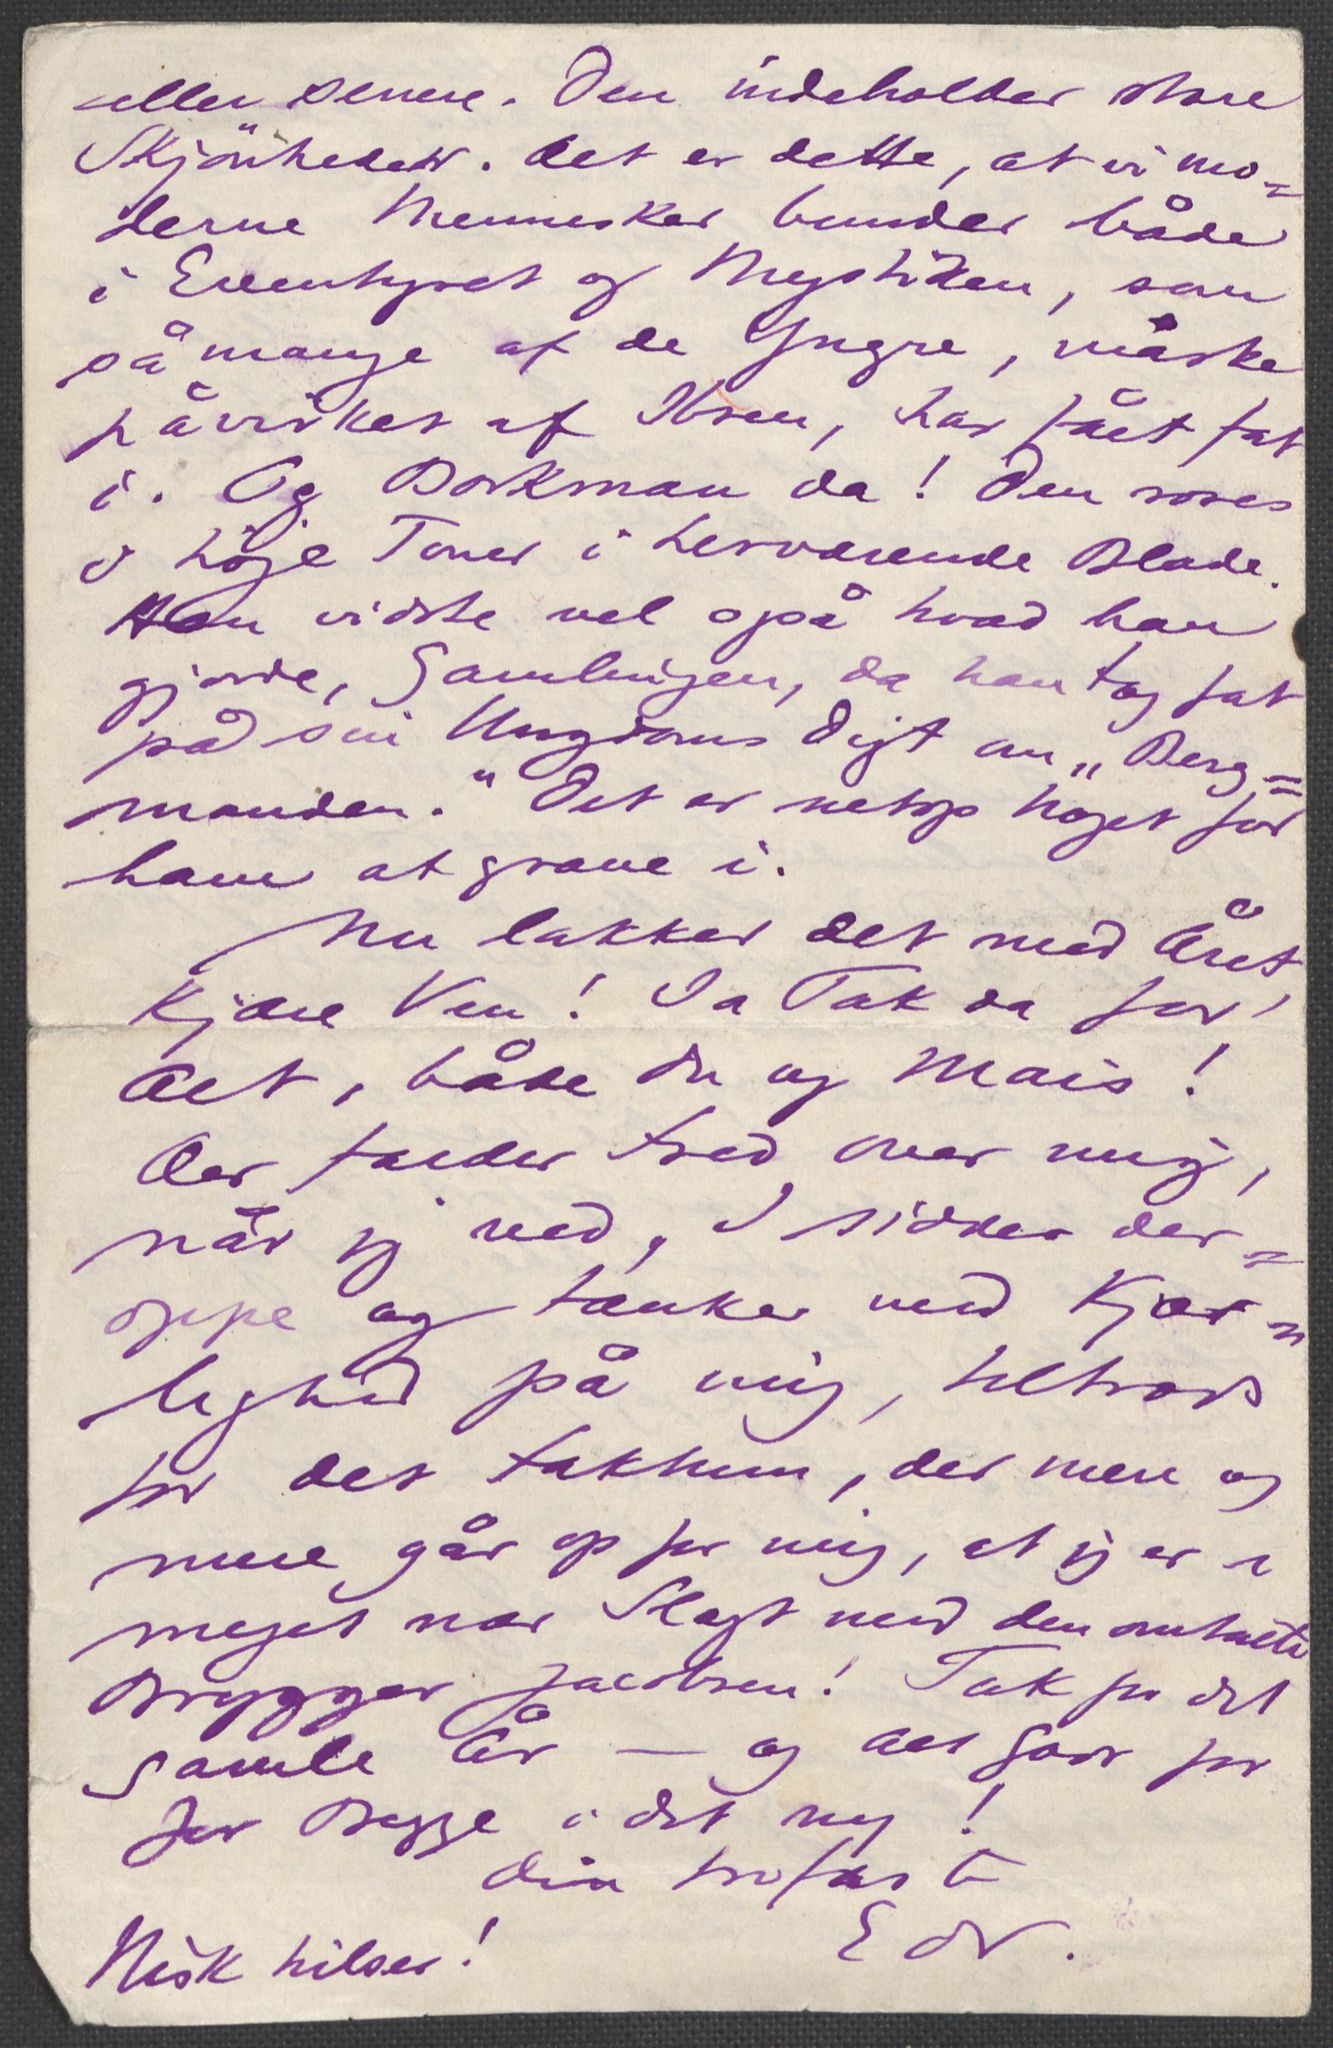 eller senere. Den indeholder store
Skjönheder. Det er dette, at vi mo=
derne Mennesker bunder både
i Eventyret og Mystiken, som
så mange af de Yngre, måske
påvirket af Ibsen, har fået fat
i. Og Borkman da! Den roses
i höje Toner i herværende Blade.
Han vidste vel også hvad han
gjorde, Gamlingen, da han tog fat
på sin Ungdoms Digt om „Berg=
manden." Det er netop Noget for
ham at grave i.
Nu lakker det med Året,
Kjære Ven! Ja Tak da for
Alt, både Du og Mais!
Der falder Fred over mig,
når jeg ved, I sidder der=
oppe og tænker med Kjær=
lighed på mig, tiltrods
for det Faktum, der mere og
mere går op for mig, at jeg er i
meget nær Slægt med den omtalte
Brygger Jacobsen! Tak for det
gamle År — og alt Godt for
Jer Begge i det ny!
Din trofaste
E dv.
Nisk hilser!